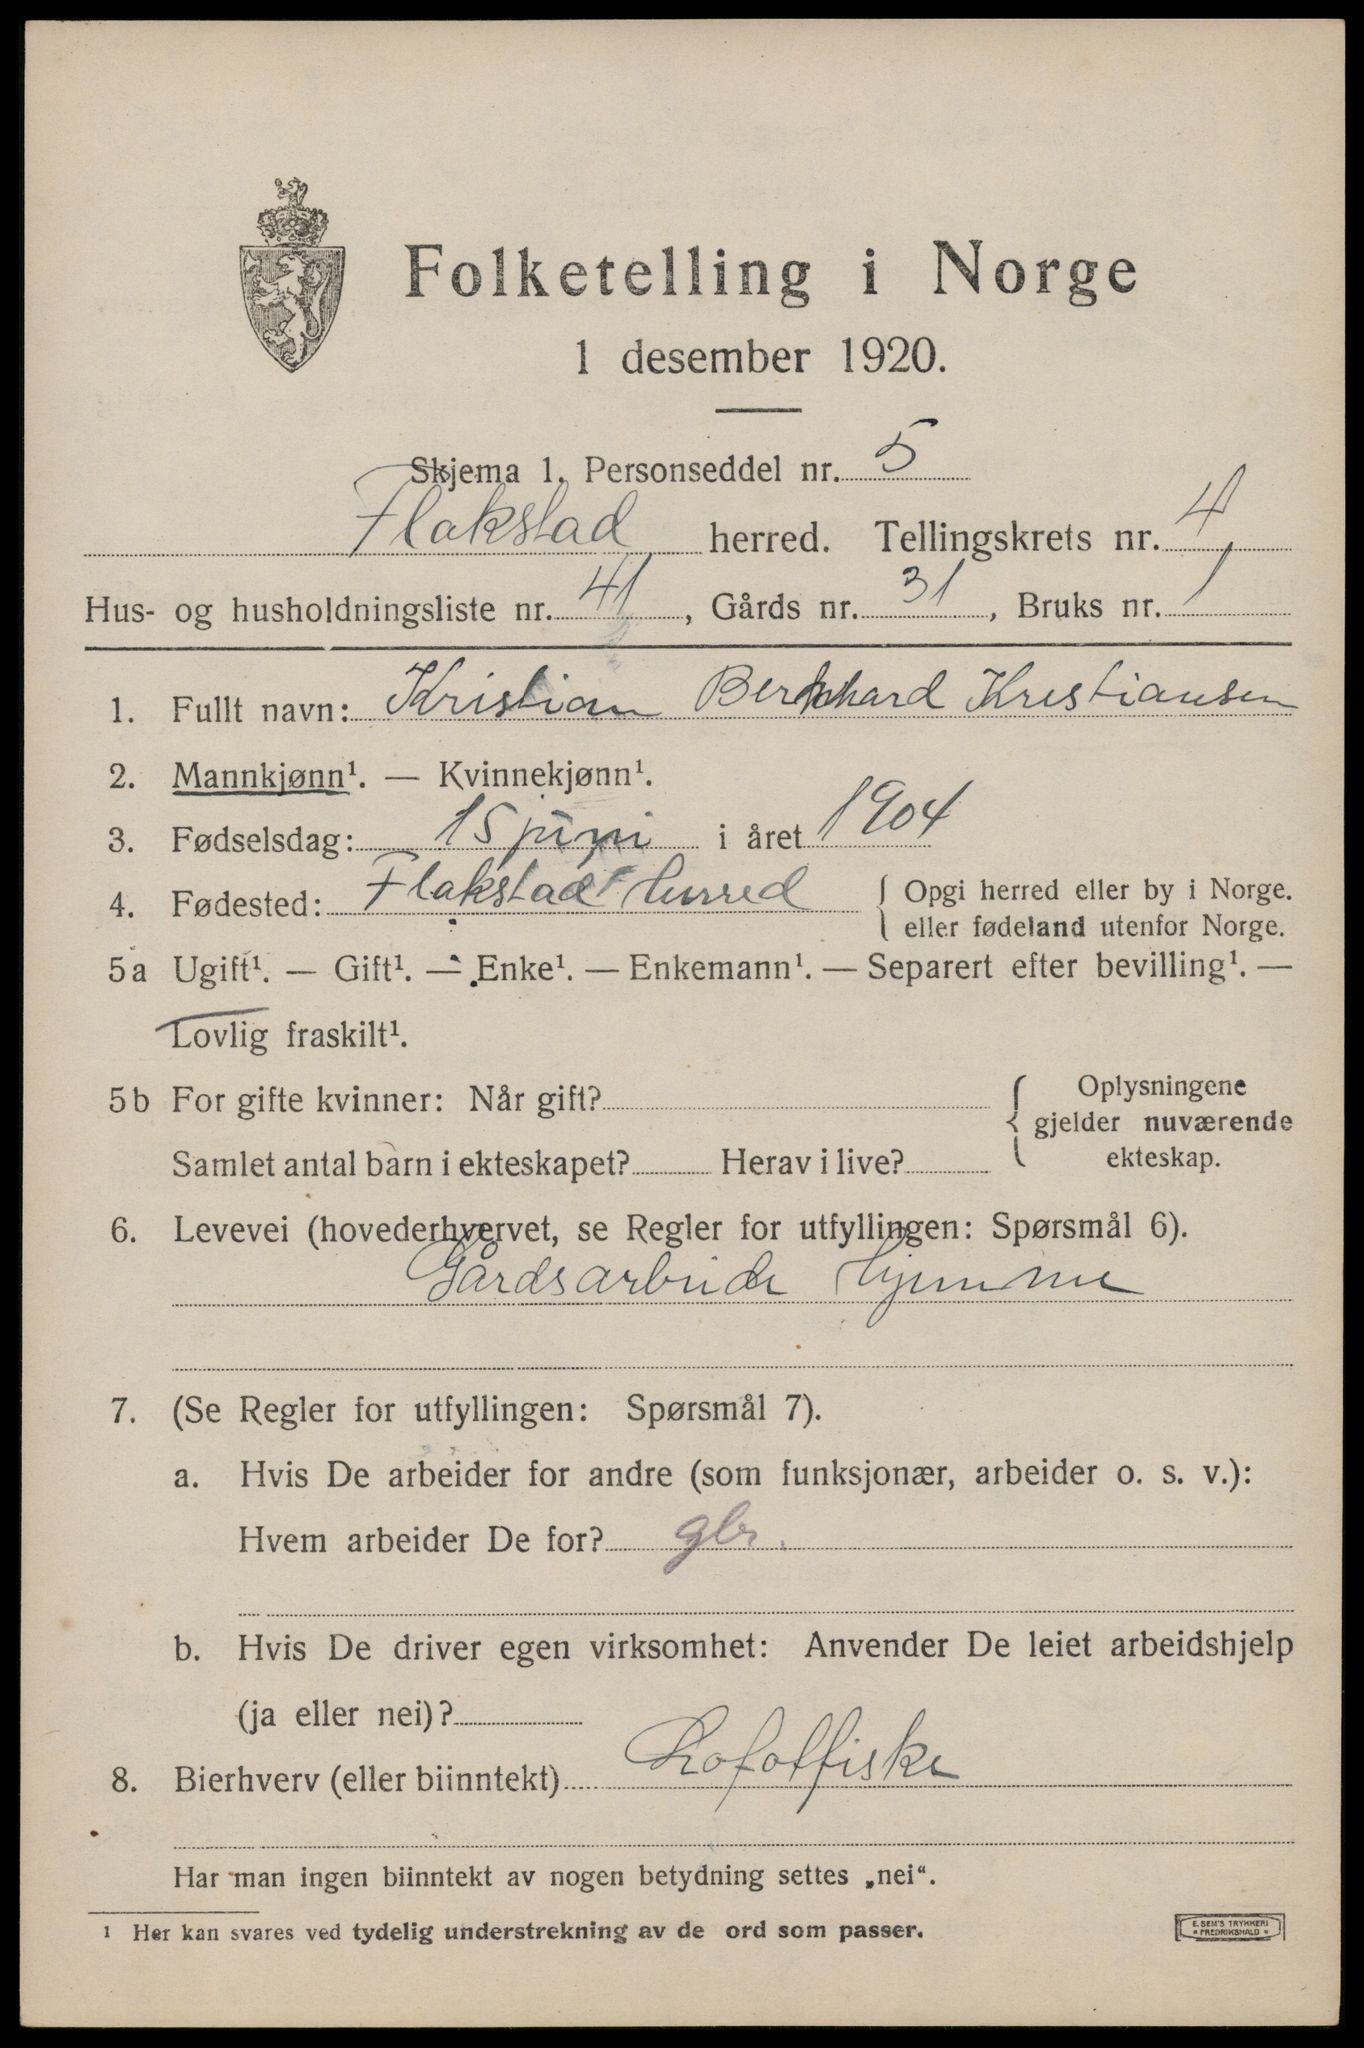 Folketelling i Norge
1 desember 1920.
Skjema 1. Personseddel nr. 5
Flakstad herred. Tellingskrets nr. 4
Hus- og husholdningsliste nr. 41, Gårds nr. 31, Bruks nr. 1
1. Fullt navn: Kristian Bernhard Kristiansen
2. Mannkjønn¹. — Kvinnekjønn¹.
3. Fødselsdag: 15 juni i året 1904
4. Fødested: Flakstad herred { Opgi herred eller by i Norge.
eller fødeland utenfor Norge.
5a Ugift¹. — Gift¹. — Enke¹. — Enkemann¹. — Separert efter bevilling¹. —
Lovlig fraskilt¹.
5b For gifte kvinner: Når gift? { Oplysningene
gjelder nuværende
Samlet antal barn i ekteskapet? Herav i live? ekteskap.
6. Levevei (hovederhvervet, se Regler for utfyllingen: Spørsmål 6).
Gårdsarbeide hjemme
7. (Se Regler for utfyllingen: Spørsmål 7).
a. Hvis De arbeider for andre (som funksjonær, arbeider o. s. v.):
Hvem arbeider De for? gbr.
b. Hvis De driver egen virksomhet: Anvender De leiet arbeidshjelp
(ja eller nei)?
8. Bierhverv (eller biinntekt) Lofotfiske
Har man ingen biinntekt av nogen betydning settes „nei“.
¹ Her kan svares ved tydelig understrekning av de ord som passer.
E. SEM'S TRYKKERI
* FREDRIKSHALD *